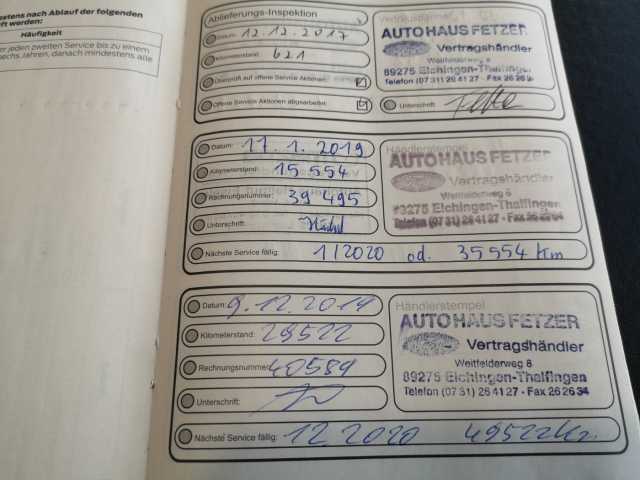 stens nach Ablauf der folgenden
ft werden:
Häufigkeit
er jeden zweiten Service bis zu einem
echs Jahren, danach mindestens alle
Ablieferungs-Inspektion
Datum: 12.12.2017
Kilometerstand: 621
Überprüft auf offene Service Aktionen:
Offene Service Aktionen abgearbeitet:
AUTOHAUS FETZER
Vertragshändler
Weitfelderweg 8
89275 Elchingen-Thalfingen
Telefon (07 31) 26 41 27 - Fax 26 26
Unterschrift:
Datum: 17.1.2019
Kilometerstand: 15 554
Rechnungsnummer: 39 495
Unterschrift:
Händlerstempel
AUTOHAUS FETZER
Vertragshändler
Weitfelderweg 8
89275 Elchingen-Thalfingen
Telefon (07 31) 26 41 27 - Fax 26 26 34
Nächste Service fällig: 1/2020 od. 35554 Km
Datum: 9.12.2019
Kilometerstand: 29522
Rechnungsnummer: 40589
Unterschrift:
Händlerstempel
AUTOHAUS FETZER
Vertragshändler
Weitfelderweg 8
89275 Elchingen-Thalfingen
Telefon (07 31) 26 41 27 - Fax 26 26 34
Nächste Service fällig: 12.2020 49522